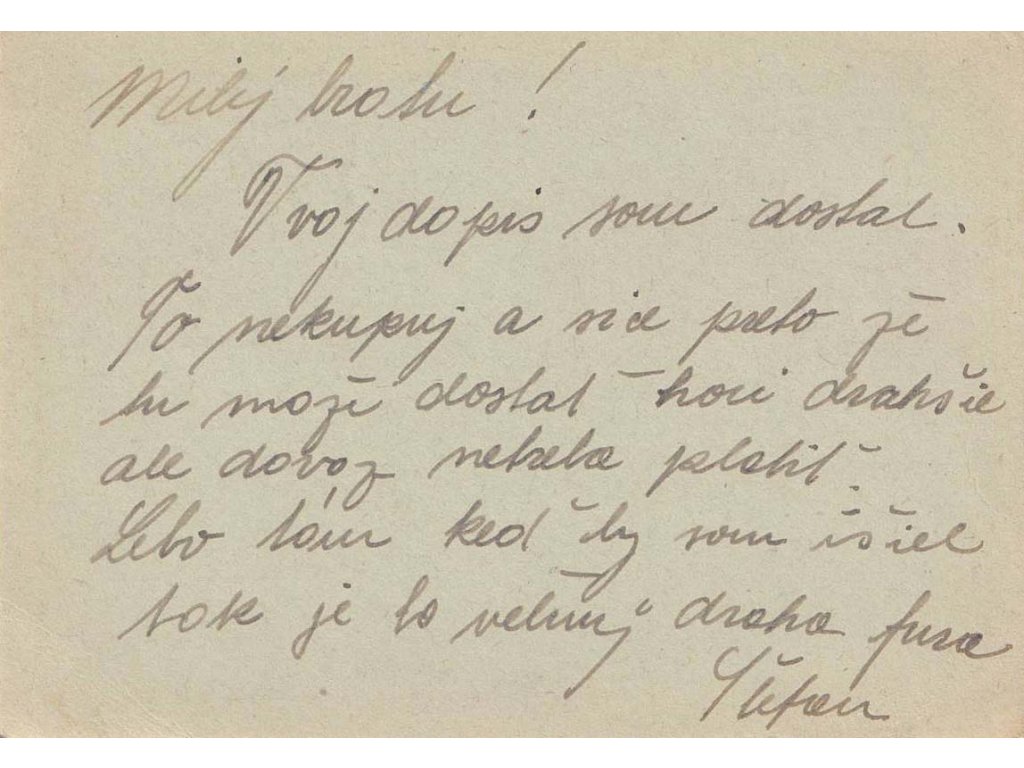 Milý bratu!
Tvoj dopis som dostal.
To nekupuj a sice preto že
tu može dostať hoci drahšie
ale dovoz netreba platiť.
Lebo tám keď by som išiel
tak je to velmi draha fura
Štefan